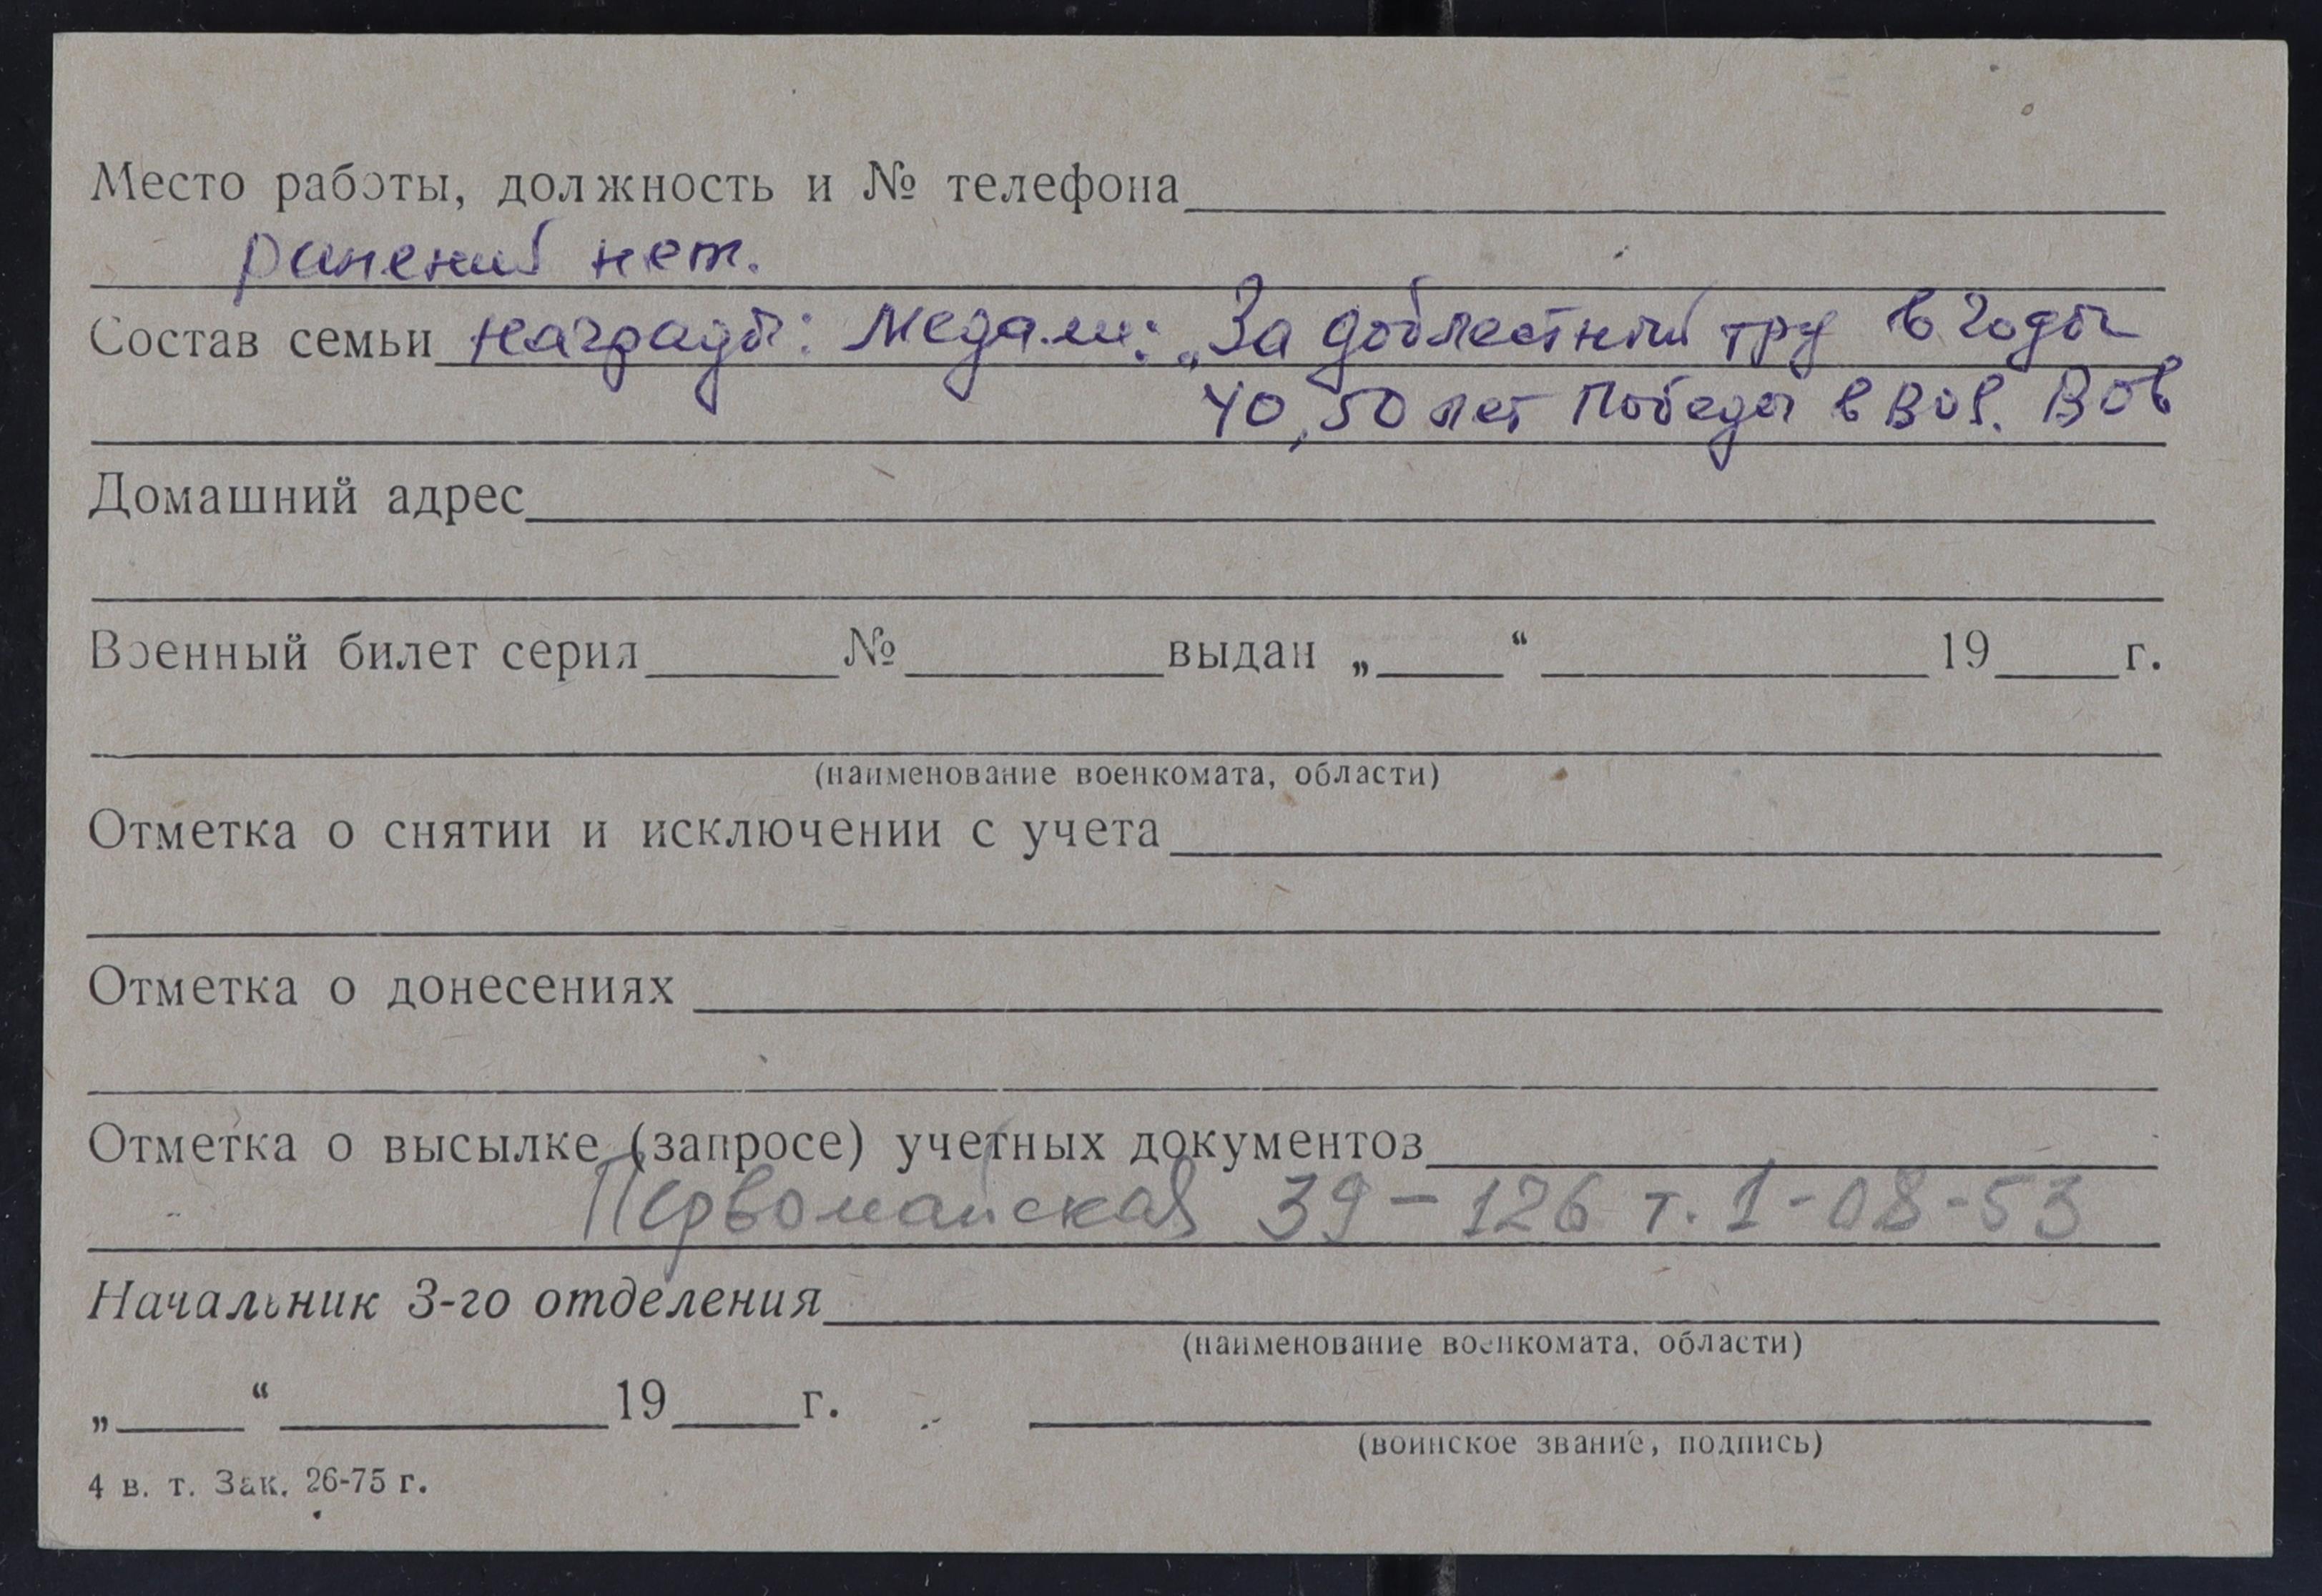 Место работы, должность и № телефона
ранений нет.
Состав семьи награды: Медали: „За доблестный труд в годы
40, 50 лет Победы в ВОВ. ВОВ
Домашний адрес
Военный билет серия № выдан „ “ 19 г.
(наименование военкомата, области)
Отметка о снятии и исключении с учета
Отметка о донесениях
Отметка о высылке (запросе) учетных документов
Первомайская 39-126 т. 1-08-53
Начальник 3-го отделения
(наименование военкомата, области)
„ “ 19 г.
(воинское звание, подпись)
4 в. т. Зак. 26-75 г.